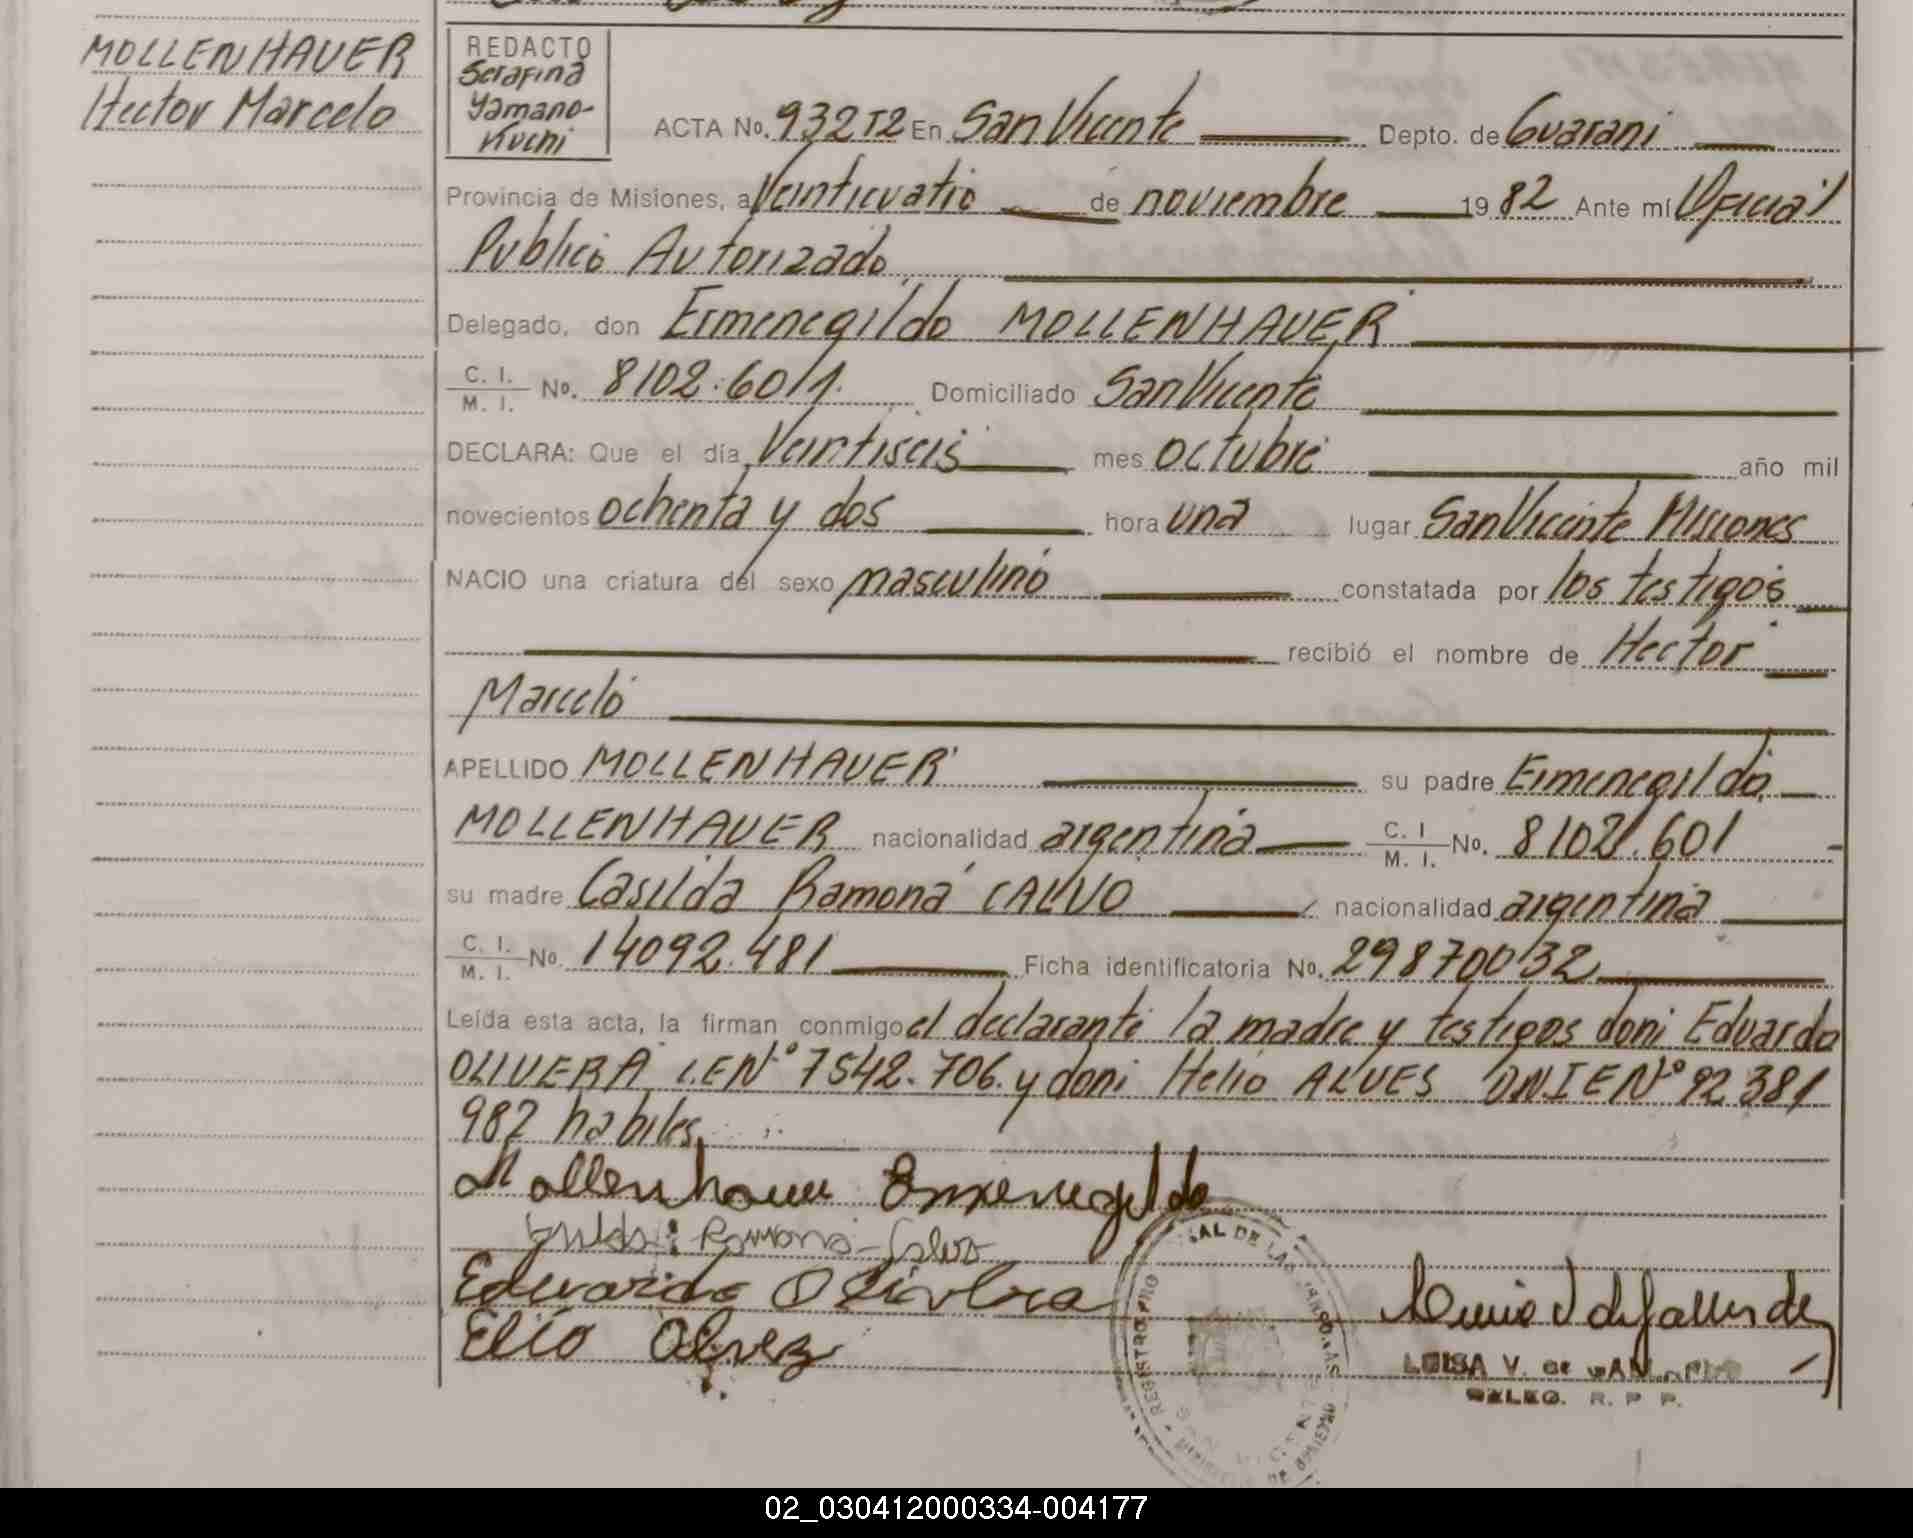 MOLLENHAUER
Hector Marcelo
REDACTO
Serafina
Yamano-
Kuchi
ACTA No. 932 T2 En San Vicente Depto. de Guarani
Provincia de Misiones, a Veinticuatro de noviembre 1982 Ante mí Oficial
Publico Autorizado
Delegado, don Ermenegildo MOLLENHAUER
C. I. / M. I. No. 8102.601. Domiciliado San Vicente
DECLARA: Que el día Veintiseis mes octubre año mil
novecientos ochenta y dos hora una lugar San Vicente Misiones
NACIO una criatura del sexo masculino constatada por los testigos
recibió el nombre de Hector
Marcelo
APELLIDO MOLLENHAUER su padre Ermenegildo
MOLLENHAUER nacionalidad argentina C. I / M. I. No. 8102.601
su madre Casilda Ramona CALVO nacionalidad argentina
C. I. / M. I. No. 14092.481 Ficha identificatoria No. 29870032
Leída esta acta, la firman conmigo el declarante la madre y testigos doni Eduardo
OLIVERA L.E N° 7542.706. y doni Helio ALVES DNIE N° 92.381
982 habiles
Mollenhauer Ermenegildo
Ramona Calvo
Eduardo Oliveira
Elio Alvez
LUISA V. de
DELEG. R. P. P.
02_030412000334-004177